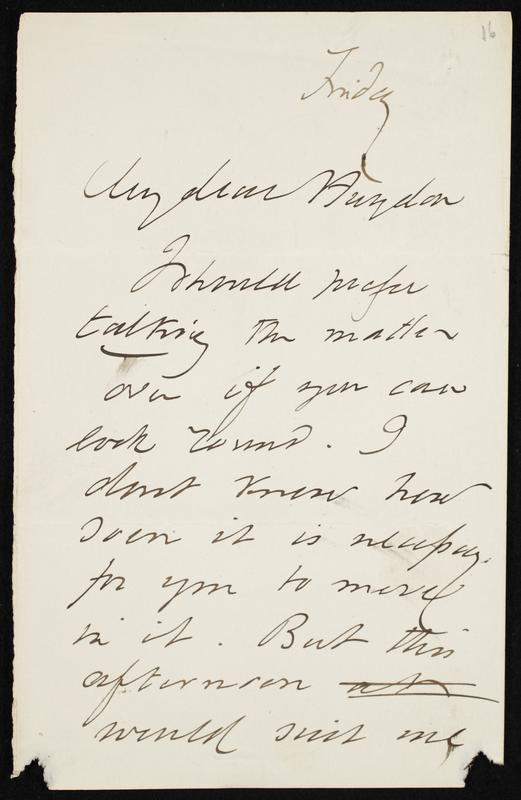 16
Friday
My dear Haydon
I should prefer
talking the matter
over if you can
look round. I
dont know how
soon it is necessary
for you to move
in it. But this
afternoon at
would suit me